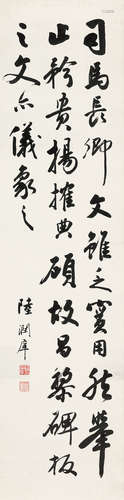 司馬長卿文雖乏實用然舉
止矜貴揚搉典碩故昌黎碑板
之文亦儀象之
陸潤庠